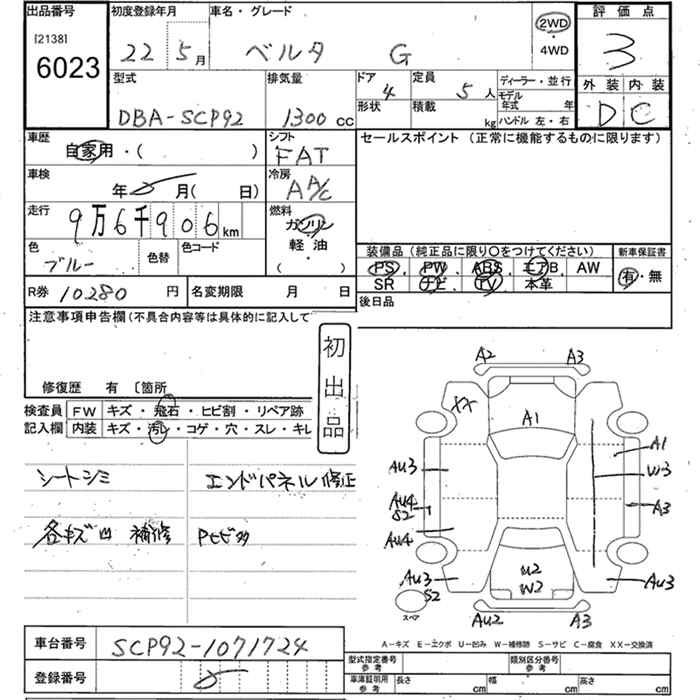 出品番号
[2138]
6023
初度登録年月
22 5月
車名・グレード
ベルタ G
2WD
・
4WD
評価点
3
外装 内装
D C
型式
DBA-SCP92
排気量
1300cc
ドア
4
形状
定員
5人
積載
kg
ディーラー・並行
モデル年式 年
ハンドル 左・右
車歴
自家用・( )
シフト
FAT
セールスポイント (正常に機能するものに限ります)
車検
年 月( 日)
冷房
A A/C
走行
9万6千906km
燃料
ガソリン
軽油
・
( )
色
ブルー
色替
色コード
装備品(純正品に限り○をつけてください)
PS・PW・ABS・エアB・AW
SR・ナビ・TV・本革
新車保証書
有・無
R券 10280円
名変期限 月 日
後日品
注意事項申告欄(不具合内容等は具体的に記入して
修復歴 有 〔箇所
初出品
検査員記入欄
FW キズ・飛石・ヒビ割・リペア跡
内装 キズ・汚レ・コゲ・穴・スレ・キレ
シートシミ
エンドパネル修正
各キズ凹 補修
Pヒビ多
A2 A3
XX
A1
AU3
A1
W3
AU4
S2
A3
AU4
U2
W2
AU3
S2
AU3
スペア
AU2 A3
A-キズ E-エクボ U-凹み W-補修跡 S-サビ C-腐食 XX-交換済
車台番号
SCP92-1071724
登録番号
型式指定番号
参考
類別区分番号
参考
車庫証明用
参考
長さ cm
幅 cm
高さ cm